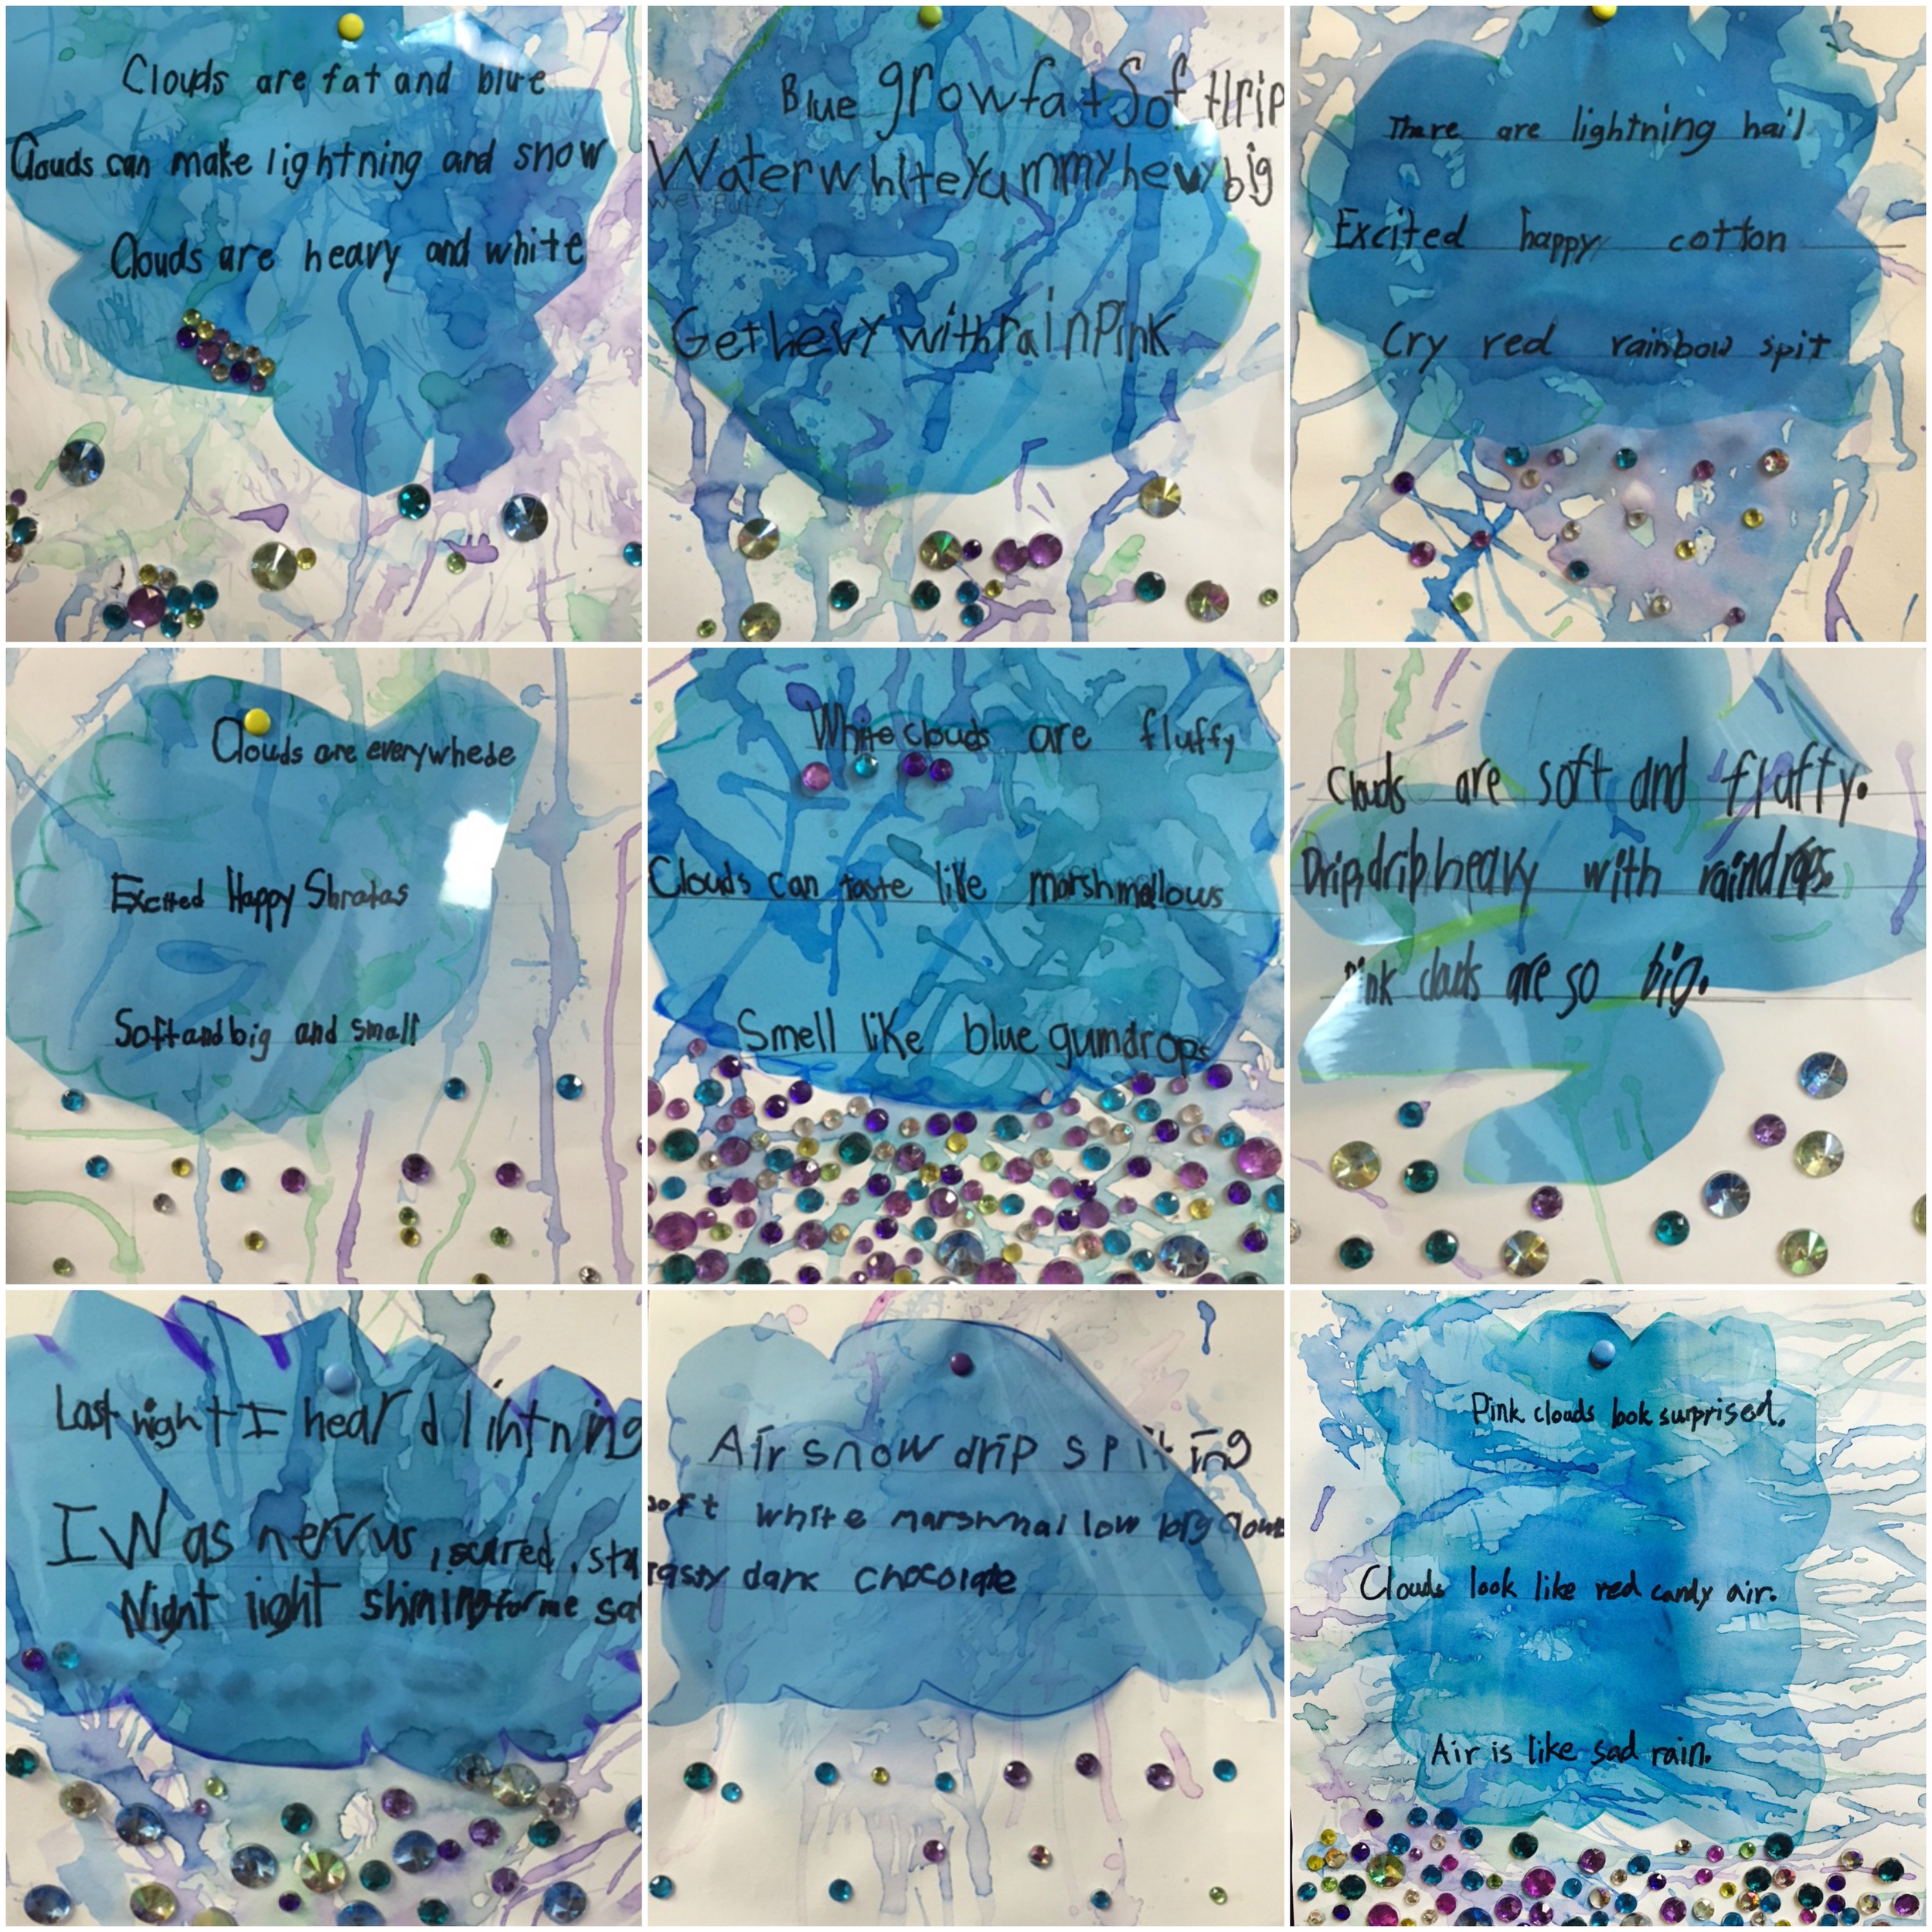 Clouds are fat and blue
Clouds can make lightning and snow
Clouds are heavy and white
Blue grow fat Soft drip
Water white Yummy hevy big
wet Puffy
Get hevy with rain Pink
There are lightning hail
Excited happy cotton
Cry red rainbow spit
Clouds are everywhede
Excited Happy Shratas
Soft and big and small
White clouds are fluffy
Clouds can taste like marshmallows
Smell like blue gumdrops
Clouds are soft and fluffy.
Drip, drip heavy with raindrops.
Pink clouds are so big.
Last night I heard lintning
I was nervus, scared,
Night light shining for me
Air snow drip spliting
soft white marshmallow big
Tasty dark chocolate
Pink clouds look surprised.
Clouds look like red candy air.
Air is like sad rain.